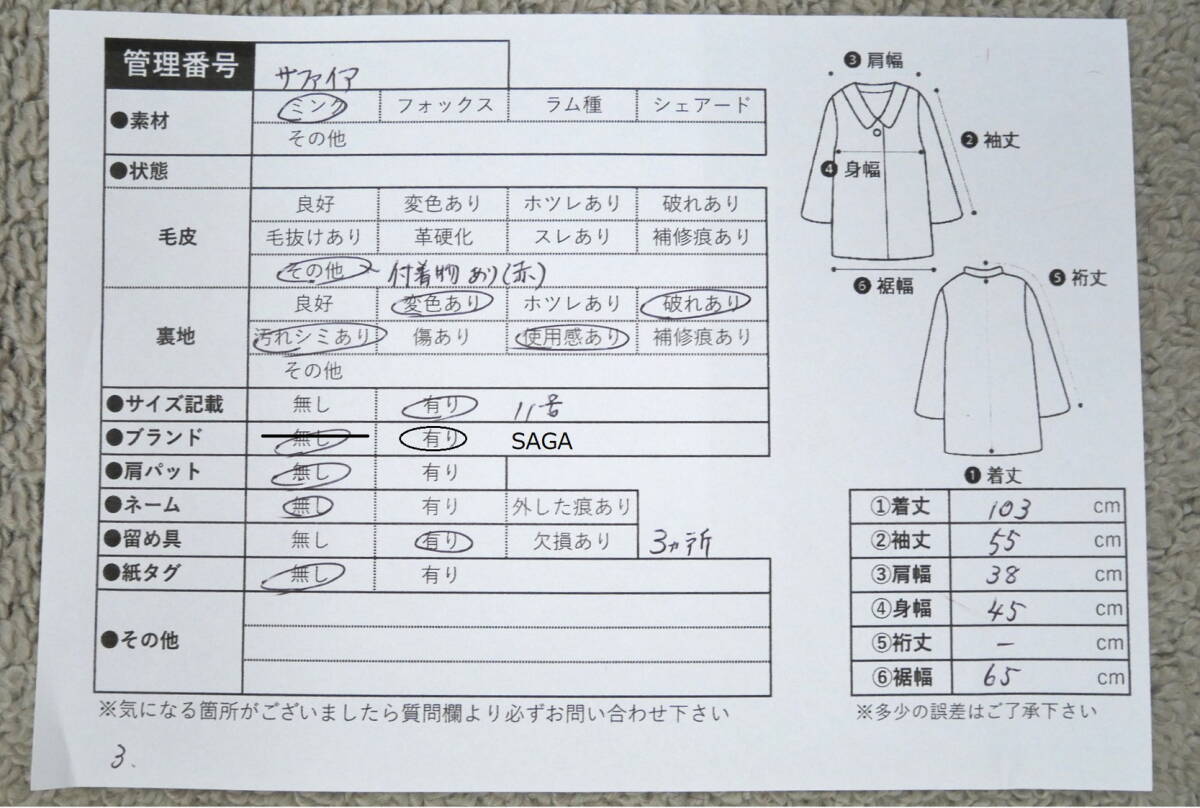 管理番号
サファイア
●素材 ミンク フォックス ラム種 シェアード
その他
●状態
毛皮 良好 変色あり ホツレあり 破れあり
毛抜けあり 革硬化 スレあり 補修痕あり
その他 付着物あり(赤)
裏地 良好 変色あり ホツレあり 破れあり
汚れシミあり 傷あり 使用感あり 補修痕あり
その他
●サイズ記載 無し 有り 11号
●ブランド 無し 有り SAGA
●肩パット 無し 有り
●ネーム 無し 有り 外した痕あり
●留め具 無し 有り 欠損あり 3ヵ所
●紙タグ 無し 有り
●その他
※気になる箇所がございましたら質問欄より必ずお問い合わせ下さい
3.
❸肩幅
❷袖丈
❹身幅
❻裾幅
❺裄丈
❶着丈
①着丈 103 cm
②袖丈 55 cm
③肩幅 38 cm
④身幅 45 cm
⑤裄丈 − cm
⑥裾幅 65 cm
※多少の誤差はご了承下さい